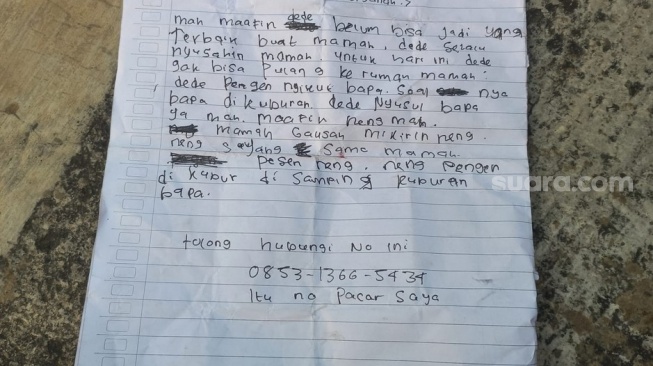 mah maafin dede belum bisa jadi yang
Terbaik buat mamah. dede selalu
nyusahin mamah. untuk hari ini dede
gak bisa pulang ke rumah mamah.
dede pengen ngikut bapa. Soal nya
bapa di kuburan. dede nyusul bapa
ya mah. maafin neng mah.
mamah Gausah mikirin neng.
neng sayang Sama mamah.
pesen neng. neng pengen
di kubur di Samping kuburan
bapa.
suara.com
tolong hubungi No ini
0853-1366-5434
Itu no Pacar Saya